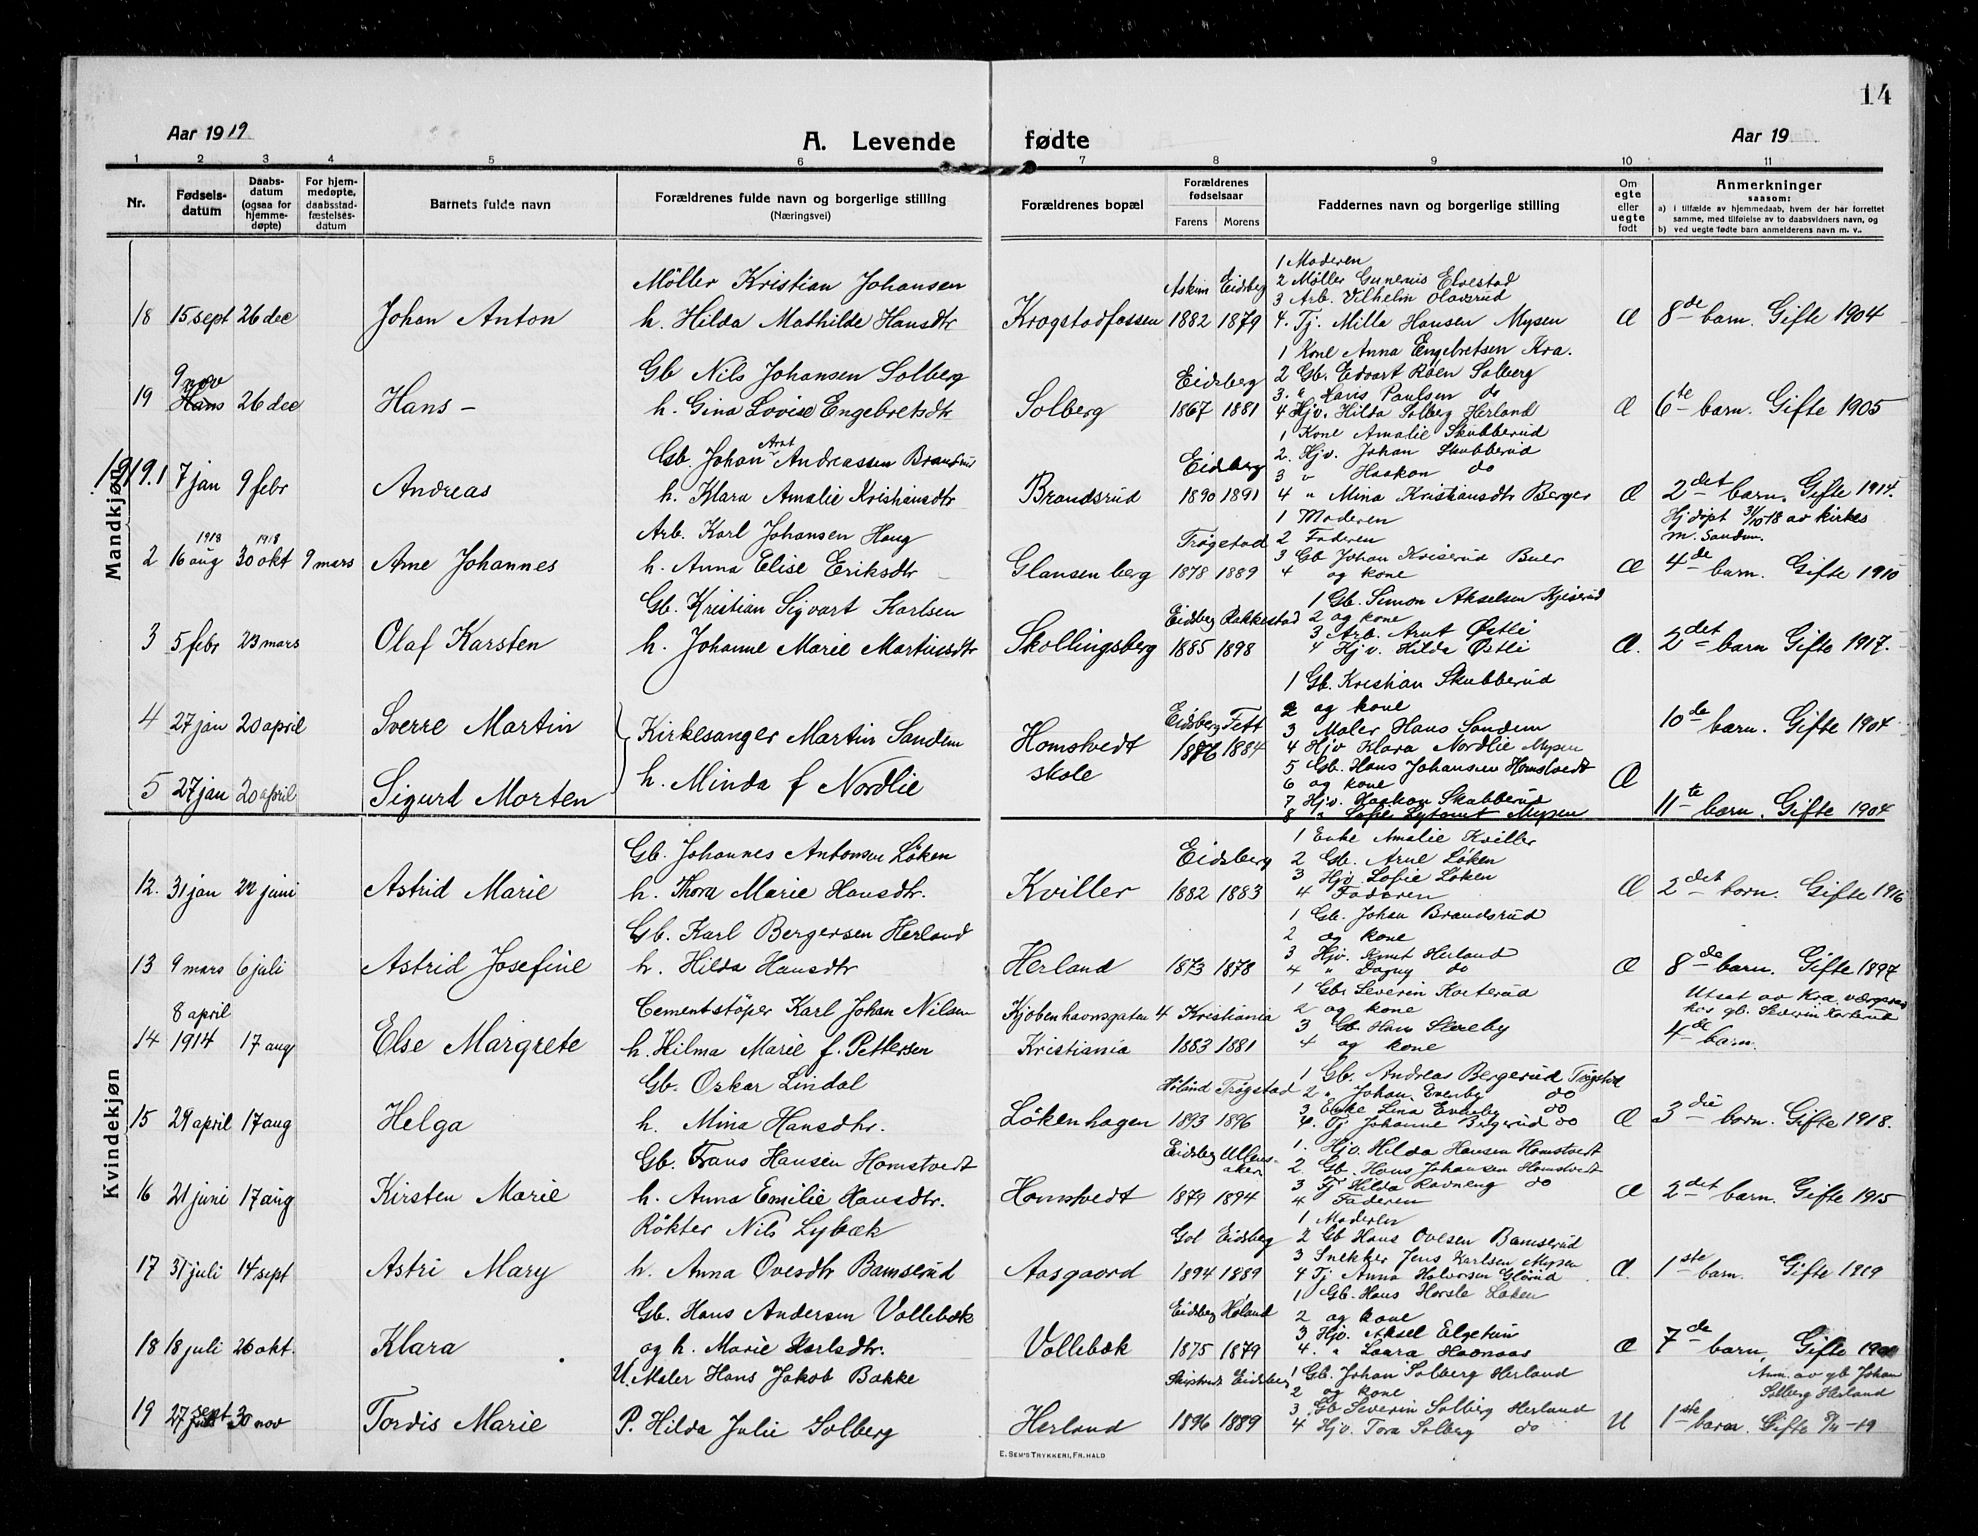 14
Aar 1919
A. Levende fødte
Aar 19
1 2 3 4 5 6 7 8 9 10 11
Nr.
Fødsels-
datum
Daabs-
datum
(ogsaa for
hjemme-
døpte)
For hjem-
medøpte,
daabsstad-
fæstelses-
datum
Barnets fulde navn
Forældrenes fulde navn og borgerlige stilling
(Næringsvei)
Forældrenes bopæl
Forældrenes
fødselsaar
Farens Morens
Faddernes navn og borgerlige stilling
Om
egte
eller
uegte
født
Anmerkninger
saasom:
a) i tilfælde av hjemmedaab, hvem der har forrettet
samme, med tilføielse av to daabsvidners navn, og
b) ved uegte fødte barn anmelderens navn m. v..
Mandkjøn
18 15 sept 26 dec Johan Anton
Möller Kristian Johansen
h. Hilda Mathilde Hansdtr
Krogstadfossen
Askim Eidsberg
1882 1879
1 Moderen
2 Møller Gunerius Elvestad
3 Arb. Vilhelm Olavsrud
4. Tj. Milla Hansen Mysen
Œ 8de barn. Gifte 1904
19 9 nov Hans 26 dec Hans -
Gb Nils Johansen Solberg
h. Gina Lovise Engebretsdtr
Solberg
Eidsberg
1867 1881
1 Kone Anna Engebretsen Kra.
2 Gb. Edvart Røen Solberg
3. " Hans Paulsen do
4 Hjv. Hilda Solberg Herland
Œ 6te barn. Gifte 1905
1919. 1 7 jan 9 febr Andreas
Gb. Johan Arnt Andreassen Brandsrud
h. Klara Amalie Kristiansdtr
Brandsrud
Eidsberg
1890 1891
1 Kone Amalie Skubberud
2. Hjv. Johan Skubberud
3 " Haakon do
4 " Mina Kristiansdtr Berger
Œ 2det barn. Gifte 1914.
2 1918 16 aug 1918 30 okt 9 mars Arne Johannes
Arb. Karl Johansen Haug
h. Anna Elise Eriksdtr
Glansenberg
Trøgstad
1878 1889
1 Moderen
2 Faderen
3 Gb Johan Kriserud Buer
4 og kone
Hjdøpt 31/10 18 av kirkes
m. Sandem.
Œ 4de barn. Gifte 1910
3 5 febr 23 mars Olaf Karsten
Gb. Kristian Sigvart Karlsen
h. Johanne Marie Martinsdtr
Skollingsberg
Eidsberg Rakkestad
1885 1898
1 Gb. Simon Akselsen
2 og kone
3 Arb. Arnt Østli
4 Hjv. Hilda Østli
Œ. 2det barn Gifte 1917.
4 27 jan 20 april Sverre Martin
Kirkesanger Martin Sandem
h. Minda f Nordlie
Homstvedt
skole
Eidsberg Fett
1876 1884
1 Gb. Kristian Skubberud
2 og kone
3 Maler Hans Sandem
4 Hjv Klara Nordlie Mysen
5 Gb. Hans Johansen Homstvedt
6 og kone
7 Hjv. Haakon Skubberud
8 " Sofie Mysen
10de barn. Gifte 1904
5 27 jan 20 april Sigurd Morten
Œ
11te barn. Gifte 1904
Kvindekjøn
12. 31 jan 22 juni Astrid Marie
Gb. Johannes Antonsen Løken
h. Thora Marie Hansdtr.
Kviller
Eidsberg
1882 1883
1 Enke Amalie Kviller
2 Gb. Arne Løken
3 Hjv Sofie Løken
4 Faderen
Œ 2det barn. Gifte 1916
13 9 mars 6 juli Astrid Josefine
Gb. Karl Bergersen Herland
h. Hilda Hansdtr
Herland
1873 1878
1 Gb. Johan Brandsrud
2 og kone
3 Hjv. Knut Herland
4 " Dagny do
Œ 8de barn. Gifte 1897
14 8 april 1914 17 aug Else Margrete
Cementstøper Karl Johan Nilsen
h. Hilma Marie f. Pettersen
Kjøbenhavnsgaten 4
Kristiania
Kristiania
1883 1881
1 Gbr Severin Korterud
2 og kone
3 Gb Hans Slereby
4 og kone
Utsat av Kra. værgeraad
hos gb. Severin Korterud
4de barn.
15 29 april 17 aug Helga
Gb. Oskar Lindal
h. Mina Hansdtr.
Løkenhagen
Høland Trøgstad
1893 1896
1 Gb. Andreas Bergerud Trøgstad
2 " Johan Enerby do
3 Enke Lina Enerby do
4. Tj Johanne Bergerud do
Œ 3die barn. Gifte 1918.
16 21 juni 17 aug Kirsten Marie
Gb. Frans Hansen Homstvedt
h. Anna Emilie Hansdtr.
Homstvedt
Eidsberg Ullens-
aker
1879 1894
1. Hjv. Hilda Hansen Homstvedt
2. Gb. Hans Johansen Homstvedt
3 Tj Hilda Ravneng do
4 Faderen
Œ 2det barn. Gifte 1915
17 31 juli 14 sept Astri Mary
Røkter Nils Lybæk
h. Anna Ovesdtr Bamserud
Aasgaard
Gol Eidsberg
1894 1889
1 Moderen
2 Gb Hans Ovesen Bamserud
3 Snekker Jens Karlsen Mysen
4 Tj Anna Halvorsen Glørud
Œ. 1ste barn. Gifte 1919
18 18 juli 26 okt. Klara
Gb. Hans Andersen Vollebæk
og h. Marie Karlsdtr.
Vollebæk
Eidsberg Høland
1875 1879
1 Gb. Hans Horsle Løken
2 og kone
3 Hjv. Aksel Elgetun
4. " Laura Haanaas
Œ 7de barn, Gifte
19 27 sept 30 nov Tordis Marie
U. Maler Hans Jakob Bakke
P. Hilda Julie Solberg
Herland
Skiptvedt Eidsberg
1896 1889
1 Gb. Johan Solberg Herland
2 og kone
3. Gb Severin Solberg Herland
4 Hjv. Tora Solberg do
Anm. av gb Johan
Solberg Herland
U 1ste barn. Gifte 8/11 -19
E. SEM'S TRYKKERI, FR.HALD